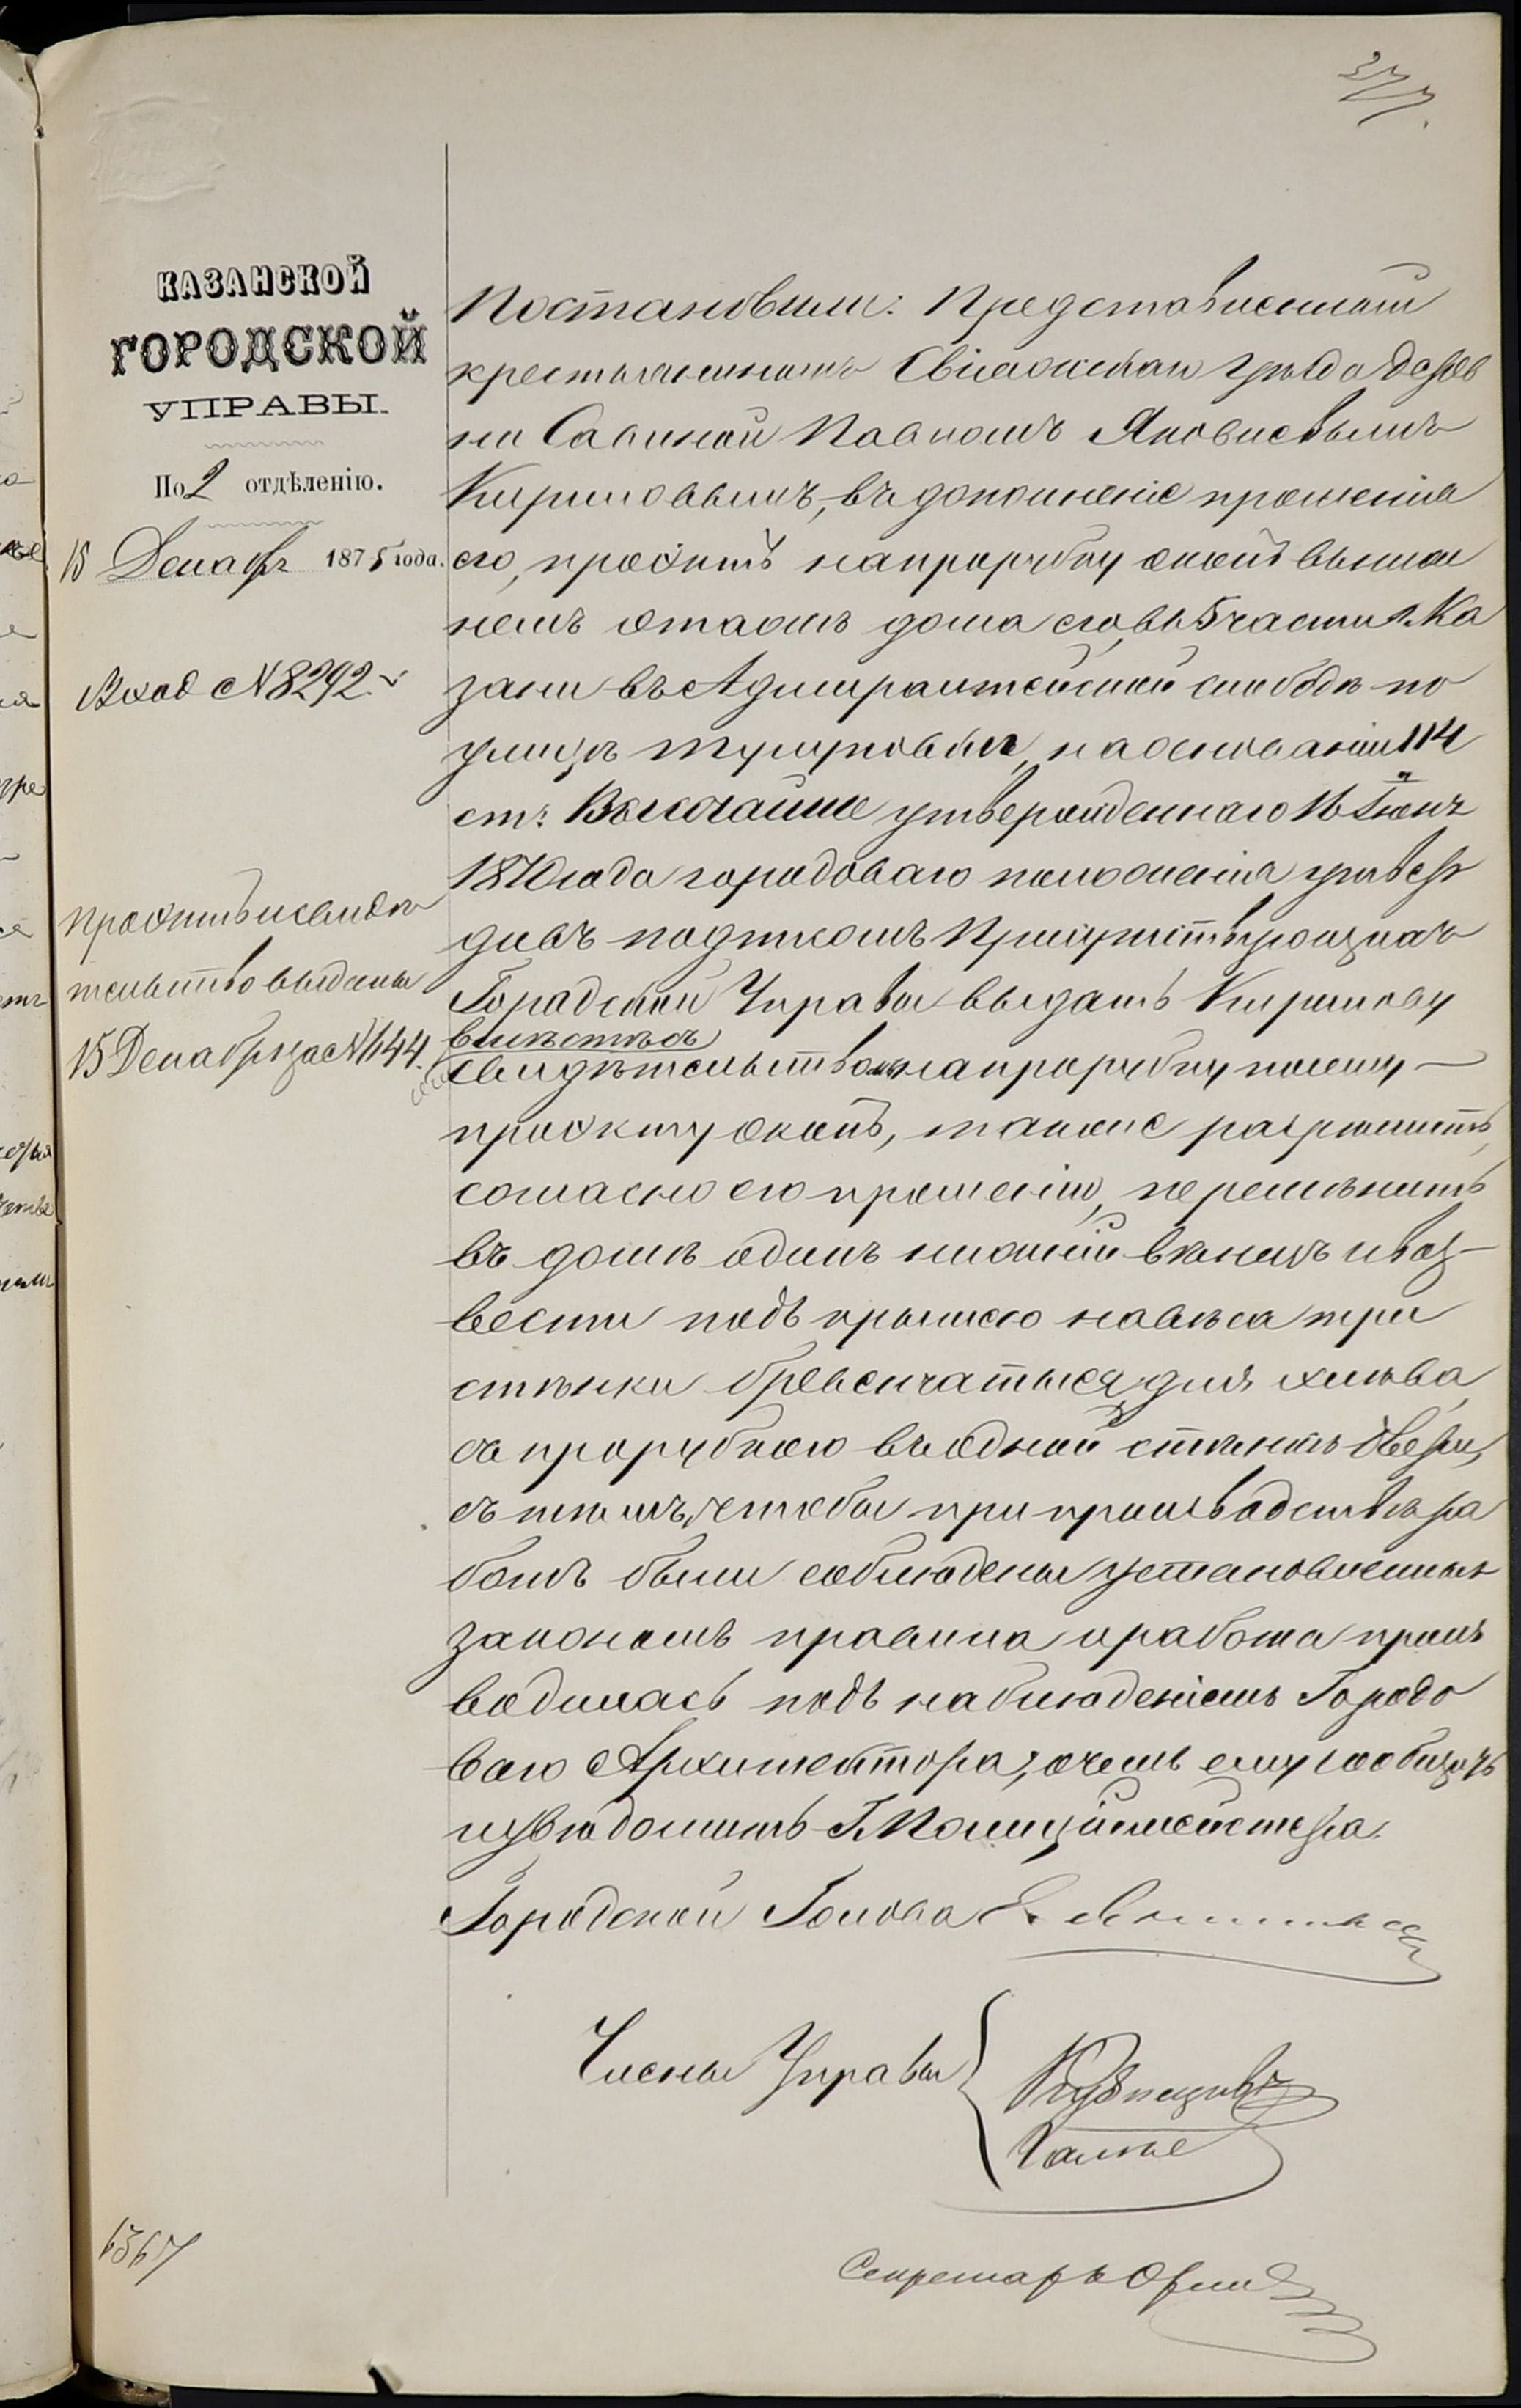 377.
КАЗАНСКОЙ
ГОРОДСКОЙ
УПРАВЫ.
По 2 отдѣленію.
15 Декабр 1875 года.
Вход № 8292.
Проэктъ и свидѣ
тельство выданы
15 Декабря за № 144.
6367
Постановили: Представленный
крестьяниномъ Свіяжскаго уѣзда дерев
ни Савиной Павломъ Яковлевымъ
Кириловымъ, въ дополненіе прошенія
его, проэктъ на прорубку оконъ въ ниж
немъ этажѣ дома его, въ 5 части г. Ка
зани въ Адмиралтейской слободѣ по
улицѣ , на основаніи 114
ст. Высочайше утвержденнаго 16 Іюня
1870 года городоваго положенія утвер
дивъ подписомъ Присутствующихъ
Городской Управы выдать Кирилову
вмѣстѣ съ
свидѣтельствомъ на прорубку по сему
проэкту оконъ, также разрѣшить,
согласно его прошенію, перемѣнить
въ домѣ одинъ нижній вѣнецъ и воз-
вести подъ крышею навѣса три
стѣнки бревенчатыя, для хлѣва,
съ прорубкою въ одной стѣнкѣ двери,
съ тѣмъ, чтобы при производствѣ ра
ботъ были соблюдены установленныя
закономъ правила и работа произ
водилась подъ наблюденіемъ Городо
ваго Архитектора, о чемъ ему сообщить
и увѣдомить Г. Полиціймейстера.
Городской Голова
Члены Управы
Кузнецовъ
Секретарь